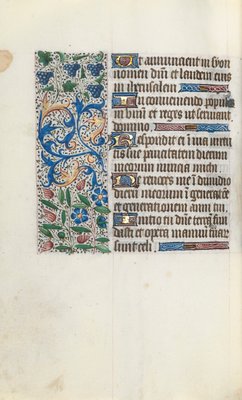 Ut annuncient in syon
nomen dñi et laudem eius
in iherusalem
In conueniendo popu
in vnũ et reges ut seruiant
domino
Respondit ei ĩ via uirtu
tis sue paucitatem dierum
meorum nũcia michi
Ne reuoces me ĩ dimidio
dierũ meorum ĩ generacõe
et generationem anni tui
Initio tu dñe terrã fun
dasti et opera manuũ tuar
sunt celi